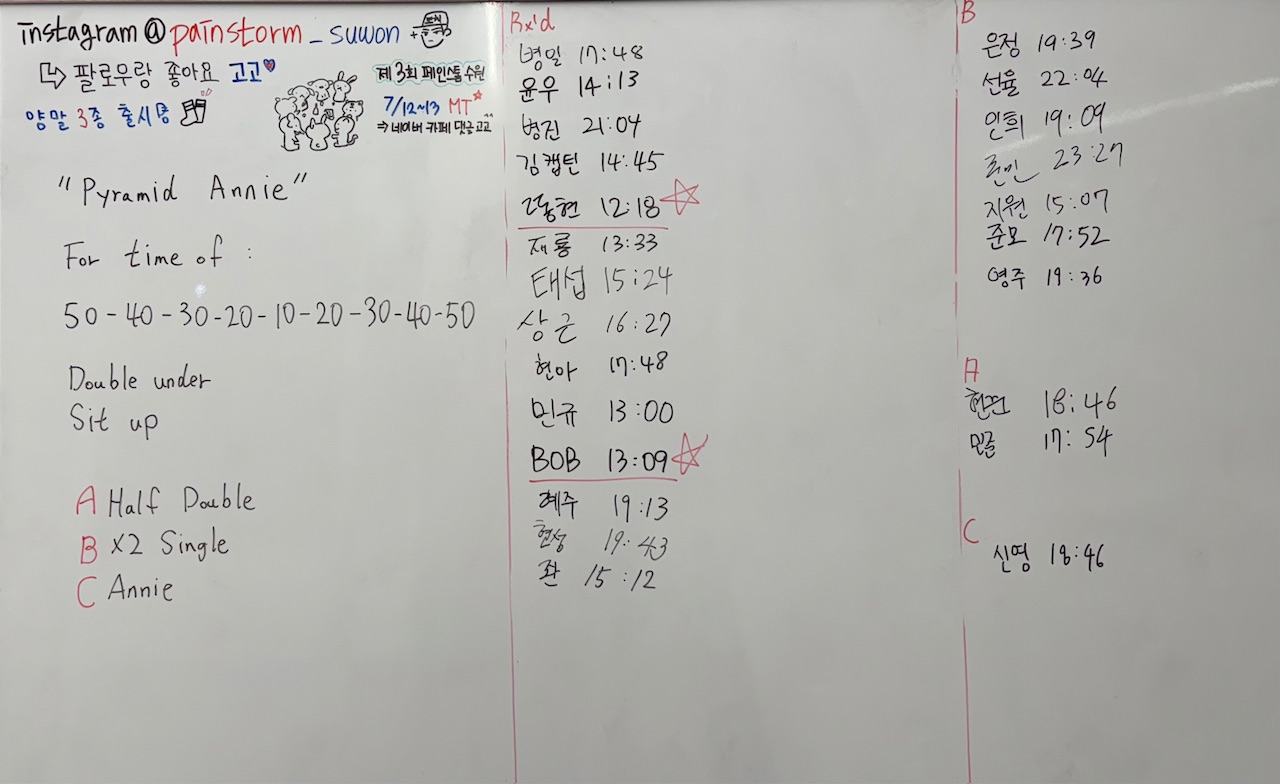 instagram@painstorm_suwon
팔로우랑 좋아요 고고
양말 3종 출시
제 3회 페인스톰 수원
7/12~13 MT
⇒ 네이버 카페 댓글 고고
"Pyramid Annie"
For time of :
50-40-30-20-10-20-30-40-50
Double under
Sit up
A Half Double
B X2 Single
C Annie
Rx'd
병일 17:48
윤우 14:13
병진 21:04
김캡틴 14:45
12:18
재룡 13:33
태섭 15:24
상근 16:27
현아 17:48
민규 13:00
BOB 13:09
혜주 19:13
현성 19:43
15:12
B
은정 19:39
선율 22:04
인희 19:09
23:27
지원 15:07
준모 17:52
영주 19:36
A
18:46
17:54
C
신영 18:46